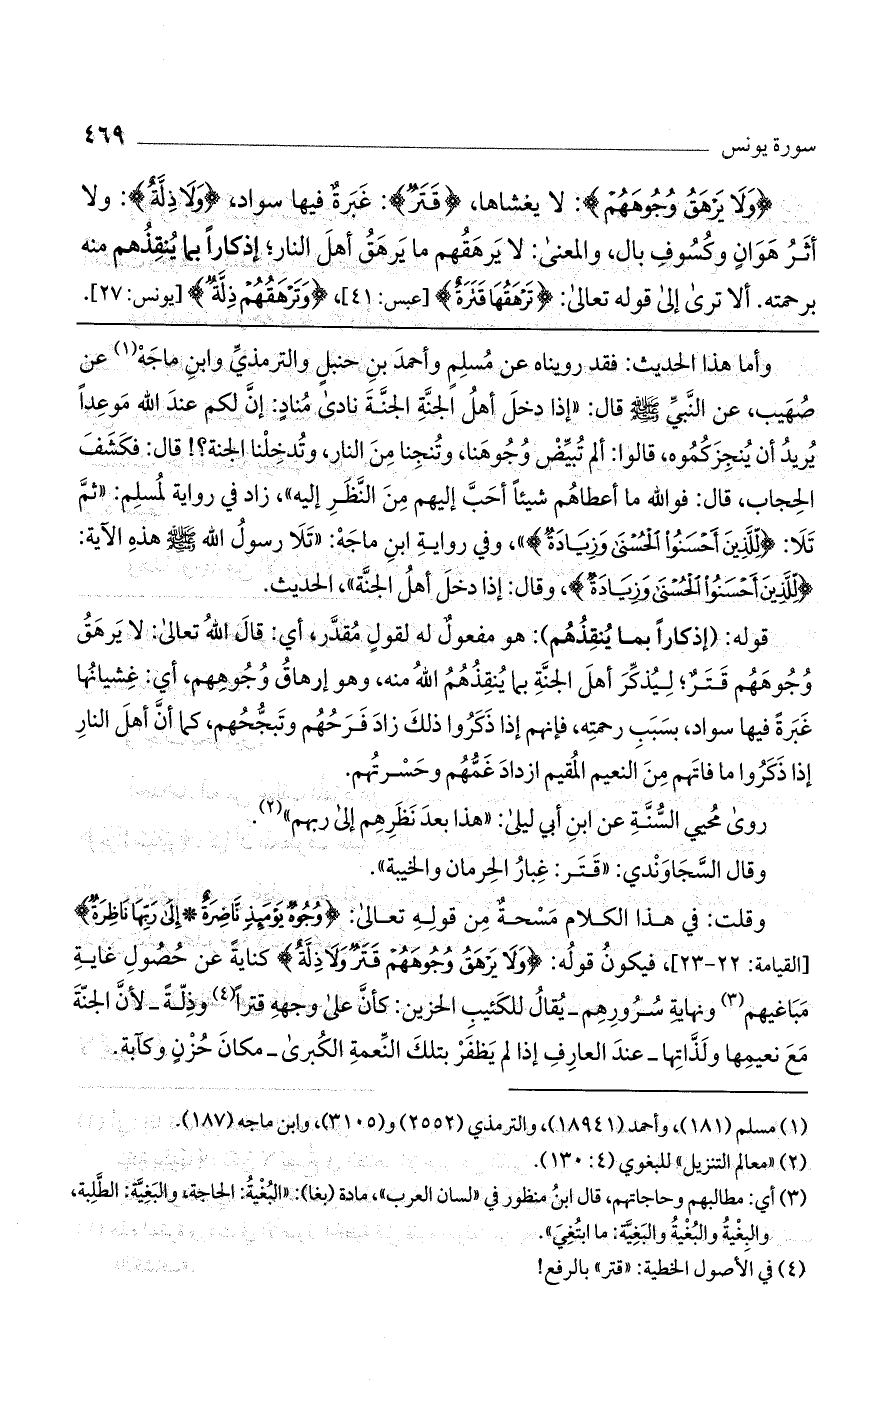 سورة يونس ٤٦٩
﴿وَلَا يَرْهَقُ وُجُوهَهُمْ﴾: لا يغشاها، ﴿قَتَرٌ﴾: غَبَرةٌ فيها سواد، ﴿وَلَا ذِلَّةٌ﴾: ولا
أثَرُ هَوَانٍ وكُسُوفِ بال، والمعنىٰ: لا يَرهَقُهم ما يَرهَقُ أهلَ النار؛ إذكاراً بما يُنقِذُهم منه
برحمته. ألا ترىٰ إلىٰ قوله تعالىٰ: ﴿تَرْهَقُهَا قَتَرَةٌ﴾ [عبس: ٤١]، ﴿وَتَرْهَقُهُمْ ذِلَّةٌ﴾ [يونس: ٢٧].
وأما هذا الحديث: فقد رويناه عن مُسلِمٍ وأحمدَ بنِ حنبلٍ والترمذيِّ وابنِ ماجَهْ(١) عن
صُهَيب، عن النَّبيِّ ﷺ قال: «إذا دخلَ أهلُ الجنَّةِ الجنَّةَ نادىٰ مُنادٍ: إنَّ لكم عندَ الله مَوعِداً
يُريدُ أن يُنجِزَكُمُوه، قالوا: ألم تُبيِّضْ وُجُوهَنا، وتُنجِنا مِنَ النار، وتُدخِلْنا الجنة؟! قال: فكَشَفَ
الحِجاب، قال: فوالله ما أعطاهُم شيئاً أحَبَّ إليهم مِنَ النَّظَرِ إليه»، زاد في رواية لمُسلِم: «ثمَّ
تَلَا: ﴿لِّلَّذِينَ أَحْسَنُوا۟ الْحُسْنَىٰ وَزِيَادَةٌ﴾»، وفي روايـةِ ابنِ ماجَهْ: «تَلَا رسولُ الله ﷺ هذهِ الآية:
﴿لِّلَّذِينَ أَحْسَنُوا۟ الْحُسْنَىٰ وَزِيَادَةٌ﴾، وقال: إذا دخلَ أهلُ الجنَّة»، الحديث.
قوله: (إذكاراً بمـا يُنقِذُهُم): هو مفعولٌ له لقولٍ مُقدَّر، أي: قالَ اللهُ تعالىٰ: لا يَرهَقُ
وُجُوهَهُم قَـتَـرٌ؛ لِـيُذكِّرَ أهلَ الجنَّةِ بما يُنقِذُهُمُ اللهُ منه، وهو إرهاقُ وُجُوهِهم، أي: غِشيانُها
غَبَرةً فيها سواد، بسَبَبِ رحمتِه، فإنهم إذا ذَكَرُوا ذلكَ زادَ فَـرَحُهُم وتَبجُّحُهم، كما أنَّ أهلَ النارِ
إذا ذَكَرُوا ما فاتَهم مِنَ النعيم المُقيم ازدادَ غَمُّهُم وحَسْـرتُهم.
روىٰ مُحيي السُّنَّـةِ عن ابنِ أبي ليلىٰ: «هذا بعدَ نَظَرِهِم إلىٰ ربهم»(٢).
وقال السَّجَاوَندي: «قَـتَـر: غبارُ الحِرمان والخيبة».
وقلت: في هـذا الكـلام مَسْحـةٌ مِن قولِـهِ تعـالىٰ: ﴿وُجُوهٌ يَوْمَئِذٍ نَّاضِرَةٌ * إِلَىٰ رَبِّهَا نَاظِرَةٌ﴾
[القيامة: ٢٢-٢٣]، فيكونُ قولُه: ﴿وَلَا يَرْهَقُ وُجُوهَهُمْ قَتَرٌ وَلَا ذِلَّةٌ﴾ كنايةً عن حُصُولِ غايـةِ
مَبَاغيهم(٣) ونهايةِ سُـرُورِهم ـ يُقالُ للكَئيبِ الحزين: كأنَّ علىٰ وجههِ قتراً(٤) وذِلّـةً ـ لأنَّ الجنَّةَ
مَعَ نعيمِها ولَذَّاتِها ـ عندَ العارِفِ إذا لم يَظفَرْ بتلكَ النِّعمةِ الكُبرىٰ ـ مكانَ حُزْنٍ وكآبة.
(١) مسلم (١٨١)، وأحمد (١٨٩٤١)، والترمذي (٢٥٥٢) و(٣١٠٥)، وابن ماجه (١٨٧).
(٢) «معالم التنزيل» للبغوي (٤: ١٣٠).
(٣) أي: مطالبهم وحاجاتهم، قال ابنُ منظور في «لسان العرب»، مادة (بغا): «البُغْيةُ: الحاجة، والبَغِيَّة: الطَّلِبة،
والبِغْيةُ والبُغْيةُ والبَغِيَّة: ما ابتُغِيَ».
(٤) في الأصول الخطية: «قتر» بالرفع!